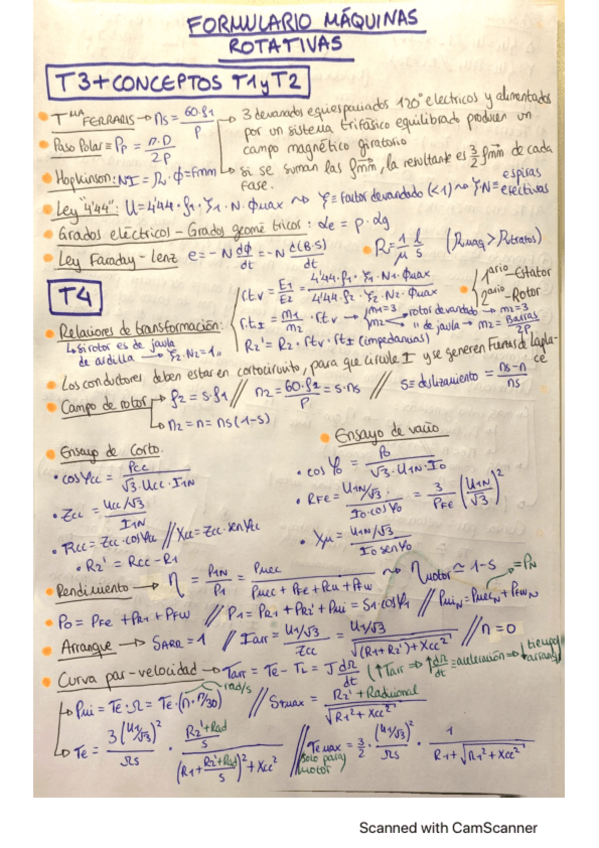 FORMULARIO MÁQUINAS
ROTATIVAS
T3+CONCEPTOS T1 y T2
• Tᴹᴬ FERRARIS → ns = 60·f1/P → 3 devanados equiespaciados 120° electricos y alimentados
por un sistema trifásico equilibrado producen un
campo magnético giratorio
• Paso Polar ≡ Pp = π·D/2P
→ si se suman las fmm, la resultante es 3/2 fmm de cada
fase.
• Hopkinson: NI = R·Φ = fmm
• Ley "4'44": U = 4'44·f1·ξ1·N·Φmax ~> ξ = factor devanado (<1) ~> ξ·N = espiras efectivas
• Grados eléctricos - Grados geométricos: αe = p·αg
• Ley Faraday-Lenz e = -N dΦ/dt = -N d(B·S)/dt
• R = 1/μ l/s (Rmag > Rtratos)
T4
• Relaciones de transformación:
rt.v = E1/E2 = 4'44·f1·ξ1·N1·Φmax / 4'44·f2·ξ2·N2·Φmax
• 1ario-Estator
2ario-Rotor
r.tI = m1/m2·rt.v → m1=3
m2 → rotor devanado → m2=3
" de jaula → m2 = Barras/2P
R2' = R2·rtv·rtI (impedancias)
↳ Si rotor es de jaula
de ardilla → ξ2·N2 = 1/2
• Los conductores deben estar en cortocircuito, para que circule I y se generen Fuerzas de Laplace
• Campo de rotor → f2 = s·f1 // n2 = 60·f2/P = s·ns // s ≡ deslizamiento = ns-n/ns
↳ n2 = n = ns(1-s)
• Ensayo de Corto.
• cosφcc = Pcc/√3·Ucc·I1N
• Zcc = Ucc/√3 / I1N
• Rcc = Zcc·cosφcc // Xcc = Zcc·senφcc
• R2' = Rcc - R1
• Ensayo de vacío
• cosφ0 = P0/√3·U1N·I0
• RFe = U1N/√3 / I0·cosφ0 = 3/PFe (U1N/√3)²
• Xμ = U1N/√3 / I0 senφ0
• Rendimiento → η = PIN/P1 = Pmec/Pmec+PFe+Pcu+Pfw ~> ηmotor ≃ 1-s
• P0 = PFe + PR1 + PFW // P1 = PR1 + PR2' + Pmi = S1·cosφ1 // PmiN = PmecN + PfwN
= PN
• Arranque → SARR = 1 // Iarr = U1/√3 / Zcc = U1/√3 / √(R1+R2')+Xcc² // n = 0
• Curva par-velocidad → Tarr = Te - TL = J dΩ/dt (↑Tarr ⇒ ↑dΩ/dt = aceleración ⇒ ↓ tiempo arranq)
↳ Pmi = Te·Ω = Te·(n·π/30) rad/s // Smax = R2'+Radicional / √R1²+Xcc²
↳ Te = 3(U1/√3)²/Ωs · R2'+Rad/s / (R1+R2'+Rad/s)²+Xcc² // Temax = 3/2·(U1/√3)²/Ωs · 1/R1+√R1²+Xcc²
solo para
motor
Scanned with CamScanner